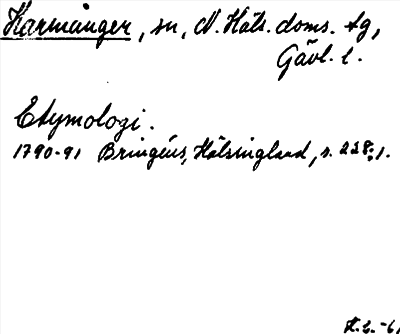 Karmånger, sn, N. Häls. doms. tg,
Gävl. l.
Etymologi.
1790-91 Bringéus, Hälsingland, s. 228:1.